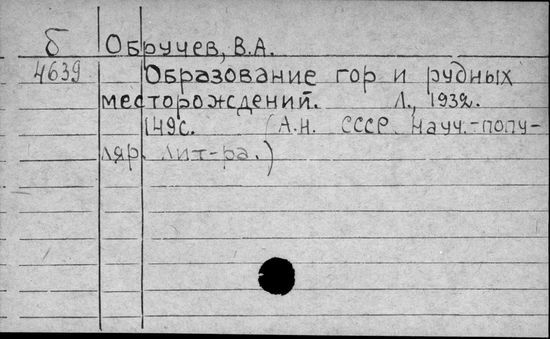 б Обручев, В.А.
4639 Образование гор и рудных
месторождений. Л., 1932.
149с. (А.Н. СССР. Науч.-попу-
ляр. лит-ра.)